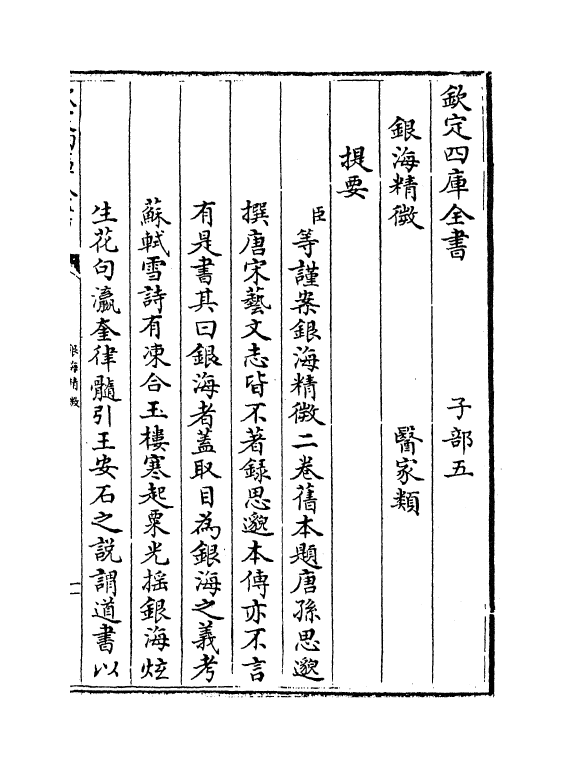 欽定四庫全書　子部五
銀海精微　醫家類
提要
臣等謹案銀海精微二卷舊本題唐孫思邈
撰唐宋藝文志皆不著録思邈本傳亦不言
有是書其曰銀海者蓋取目為銀海之義考
蘇軾雪詩有凍合玉樓寒起粟光揺銀海炫
生花句瀛奎律髓引王安石之説謂道書以
銀海精微